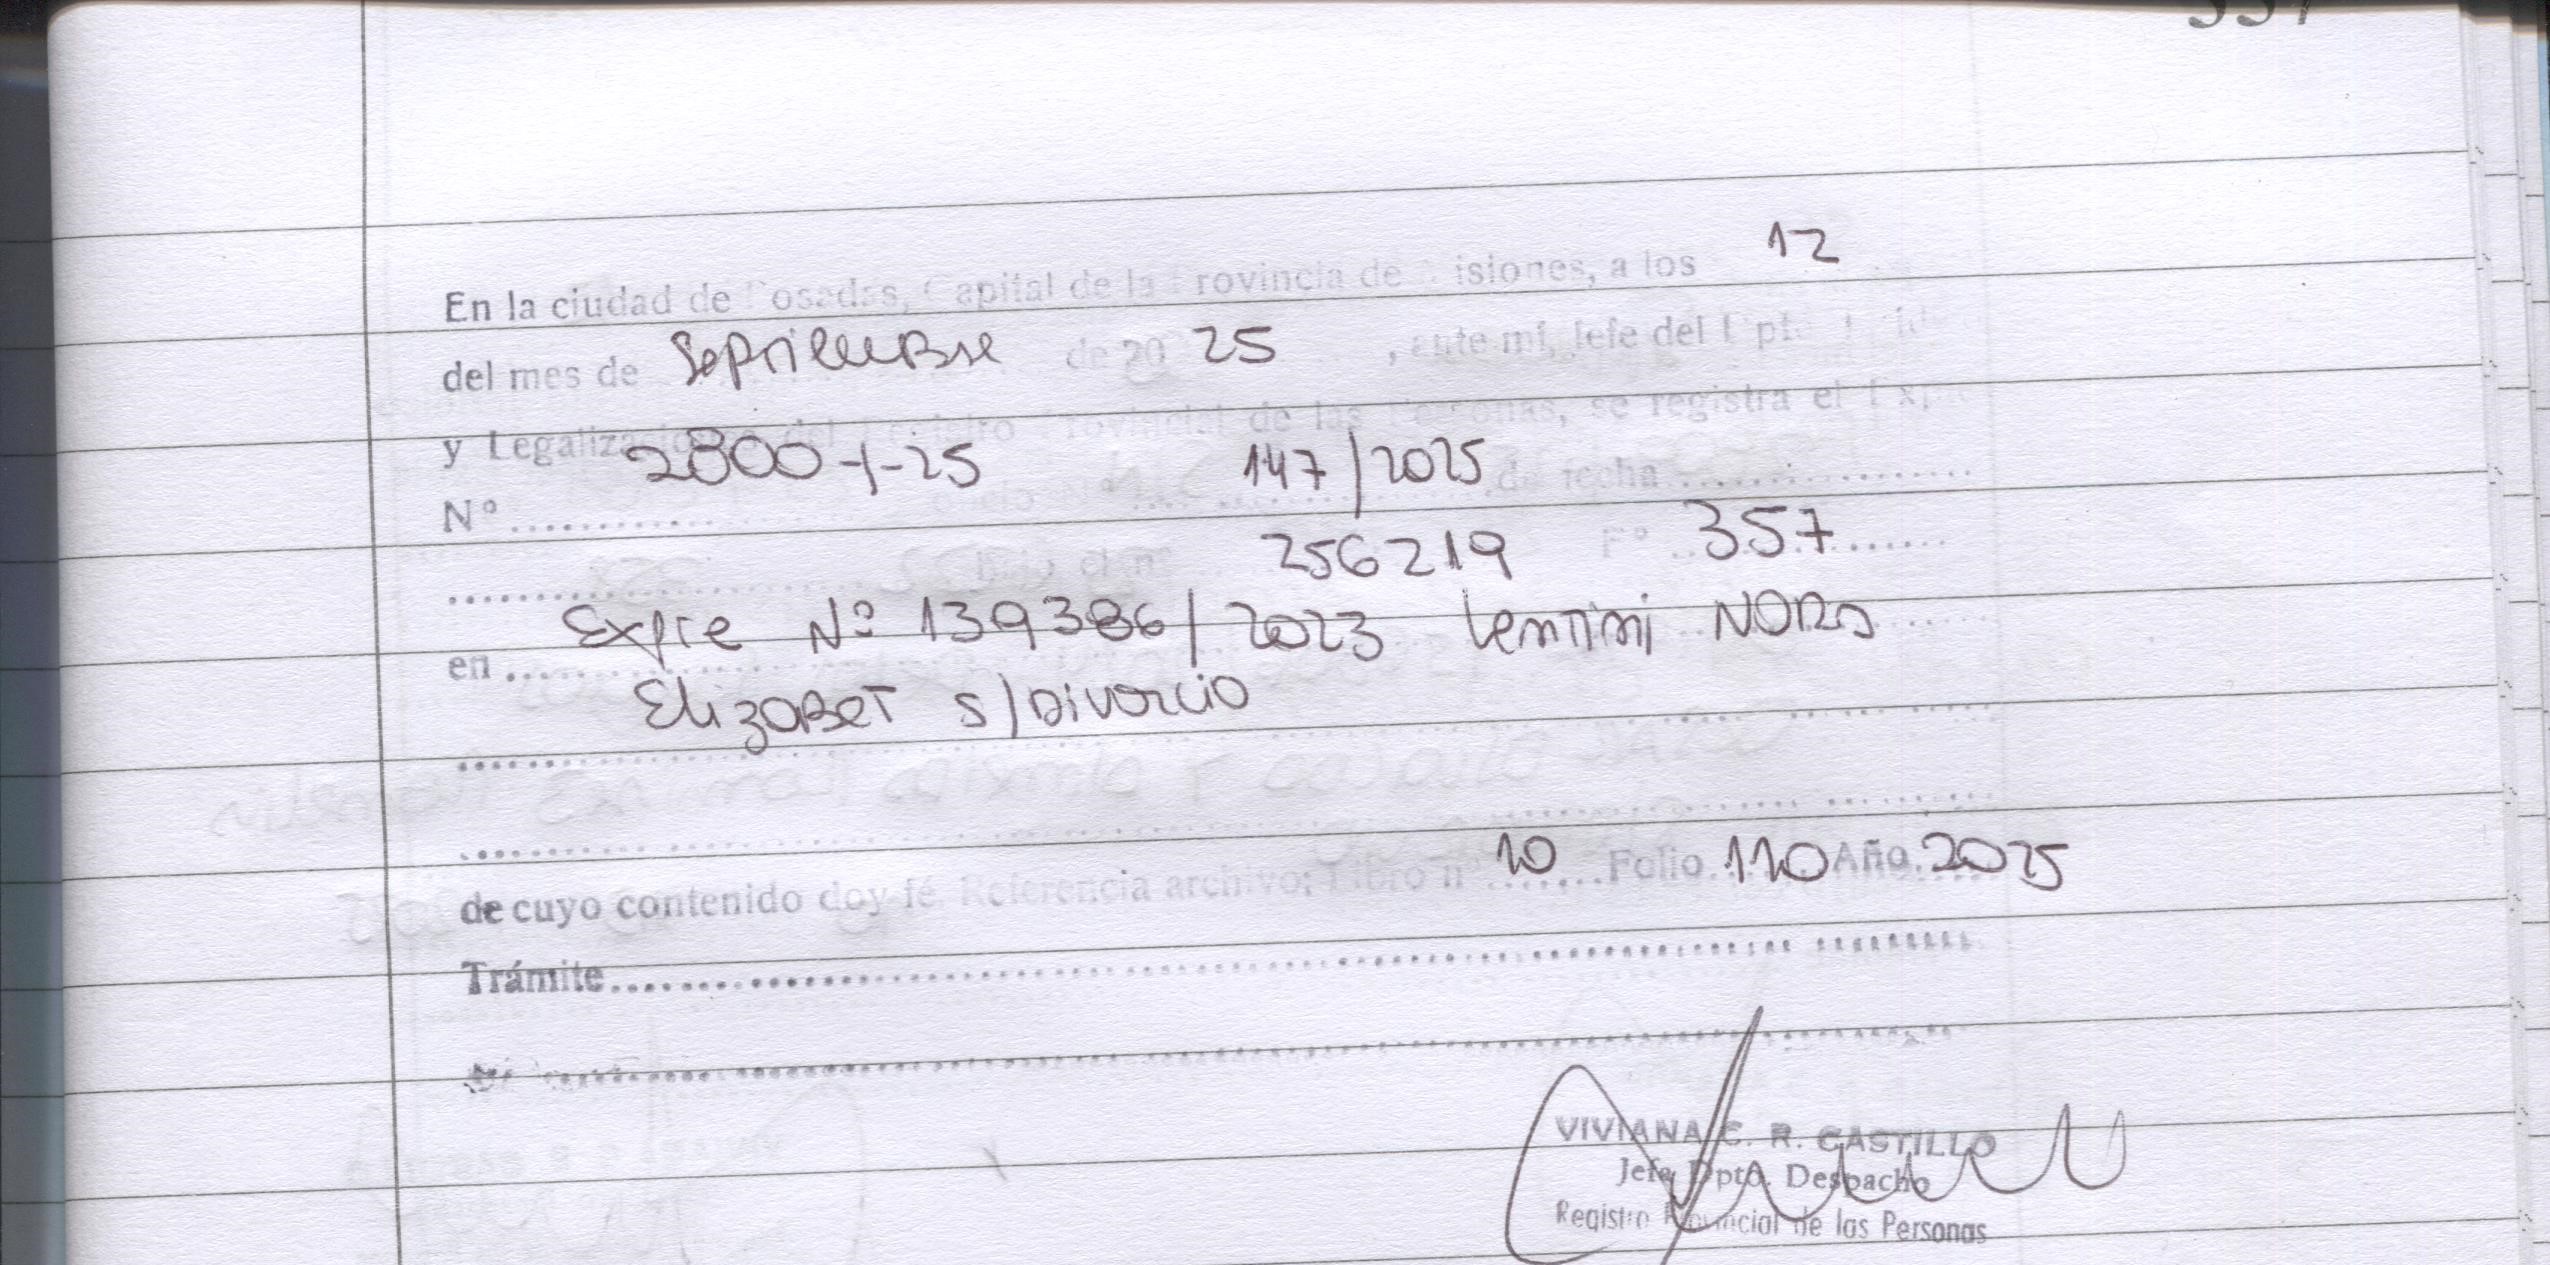 357
En la ciudad de Posadas, Capital de la Provincia de Misiones, a los 12
del mes de Septiembre de 20 25, ante mí, Jefe del Dpto.
y Legalizaciones del Registro Provincial de las Personas, se registra el Exp
Nº 2800-1-25 147/2025 de fecha
bajo el nº 256219 Fº 357
en Expte Nº 139386/2023 Lentini NORA
ElizaBeT s/Divorcio
de cuyo contenido doy fé. Referencia archivo: Libro nº 10 Folio 110 Año 2025
Trámite
VIVIANA C. R. CASTILLO
Jefa Dpto. Despacho
Registro Provincial de las Personas